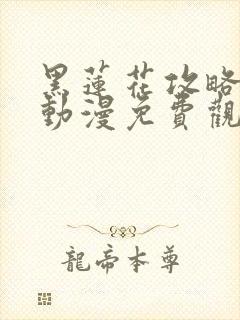 黑蓮花攻略
動漫免費觀
龍帝本尊